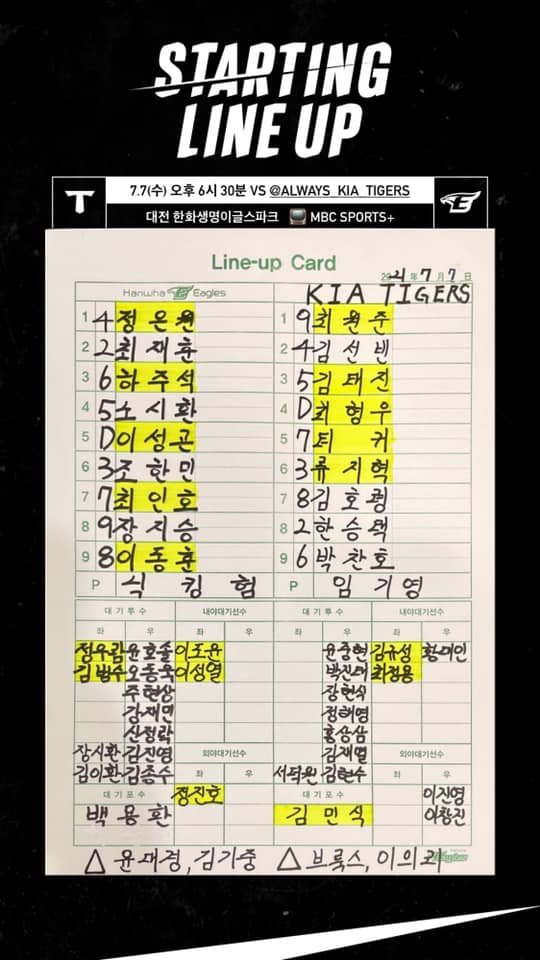 STARTING
LINE UP
7.7(수) 오후 6시 30분 VS @ALWAYS_KIA_TIGERS
대전 한화생명이글스파크 MBC SPORTS+
Line-up Card
2021 年 7 月 7 日
Hanwha Eagles KIA TIGERS
1 4 정은원 1 9 최원준
2 2 최재훈 2 4 김선빈
3 6 하주석 3 5 김태진
4 5 노시환 4 D 최형우
5 D 이성곤 5 7 터커
6 3 조한민 6 3 류지혁
7 7 최인호 7 8 김호령
8 9 장지승 8 2 한승택
9 8 이동훈 9 6 박찬호
P 킹험 P 임기영
대기투수 내야대기선수 대기투수 내야대기선수
좌 우 좌 우 좌 우 좌 우
정우람 윤호솔 이도윤 윤중현 김규성 황대인
김범수 오동욱 이성열 박진태 최정용
주현상 장현식
강재민 정해영
신정락 홍상삼
장시환 김진영 외야대기선수 김재열 외야대기선수
김이환 김종수 좌 우 서덕원 김현수 좌 우
대기포수 정진호 대기포수 이진영
백용환 김민식 이창진
△ 윤대경, 김기중 △ 브룩스, 이의리